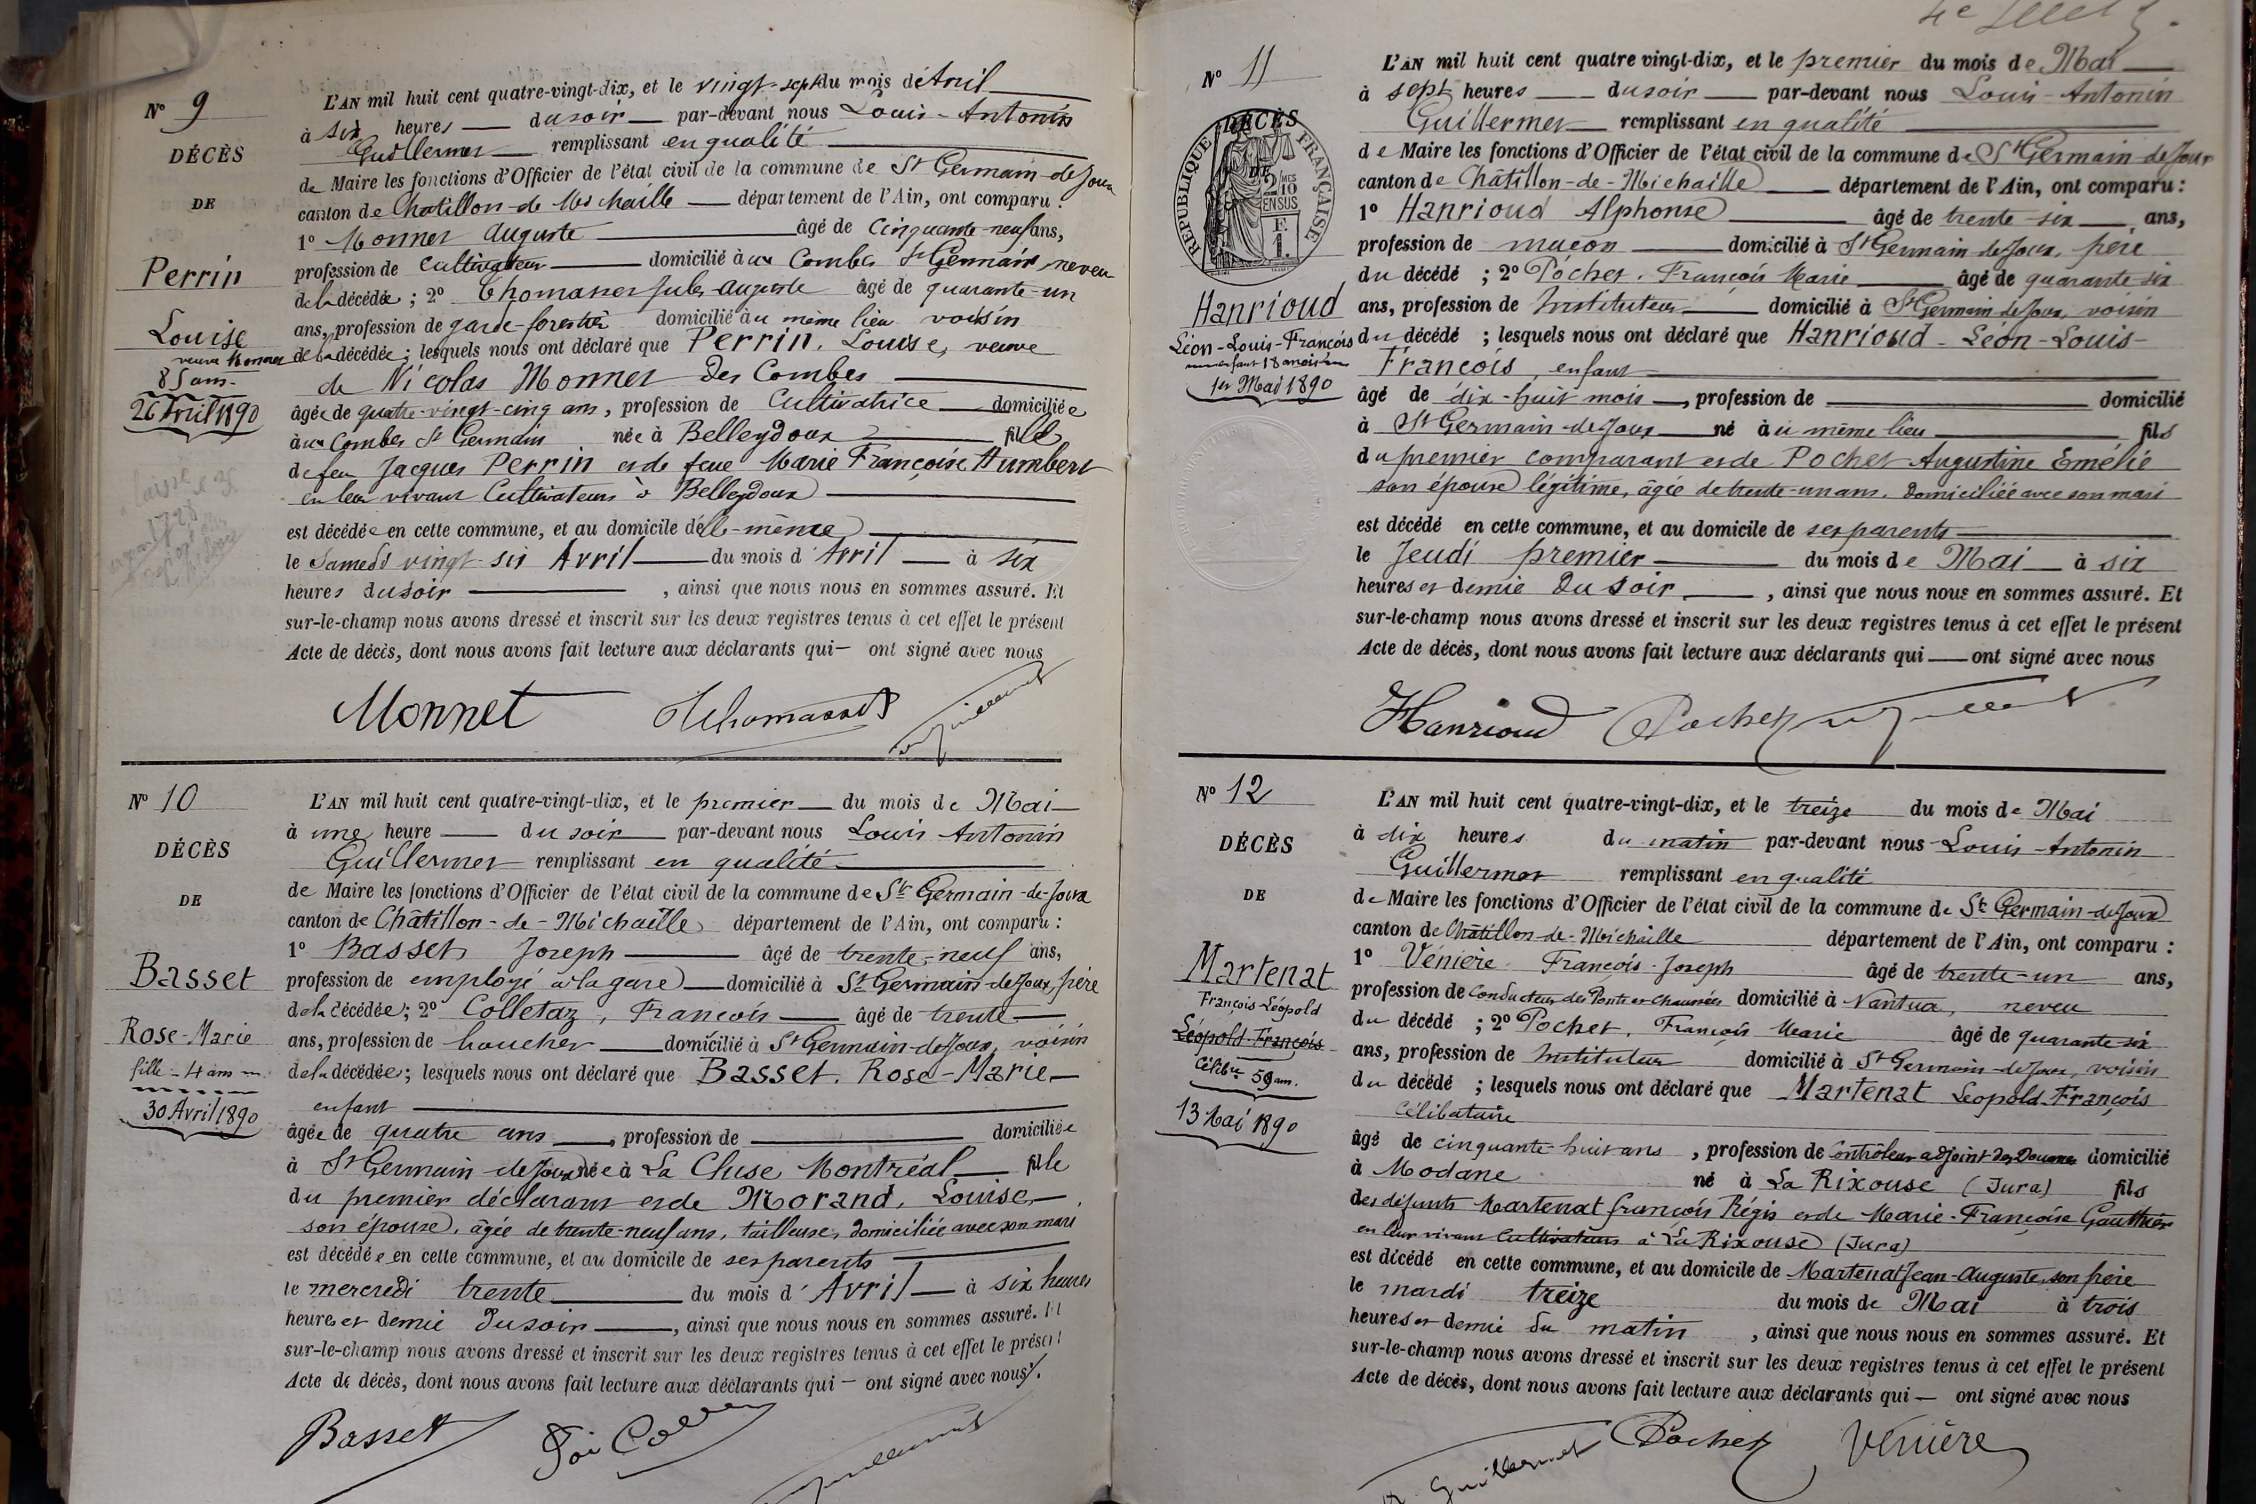 Nº 9
DÉCÈS
DE
Perrin
Louise
veuve Monnet
85 ans
26 Avril 1890
L'AN mil huit cent quatre-vingt-dix, et le vingt-sept du mois d'Avril
à six heures du soir par-devant nous Louis-Antonin
Guillermet remplissant en qualité
de Maire les fonctions d'Officier de l'état civil de la commune de St Germain-de-Joux
canton de Châtillon-de-Michaille département de l'Ain, ont comparu :
1º Monnet Auguste âgé de cinquante-neuf ans,
profession de cultivateur domicilié aux Combes St Germain neveu
de la décédée ; 2º Thomasset Jules Auguste âgé de quarante-un
ans, profession de garde-forestier domicilié au même lieu voisin
de la décédée ; lesquels nous ont déclaré que Perrin, Louise, veuve
de Nicolas Monnet des Combes
âgée de quatre-vingt-cinq ans, profession de Cultivatrice domiciliée
aux Combes St Germain née à Belleydoux fille
de feu Jacques Perrin et de feue Marie Françoise Humbert
en leur vivant Cultivateurs à Belleydoux
est décédée en cette commune, et au domicile d'elle-même
le samedi vingt-six Avril du mois d'Avril à six
heures du soir , ainsi que nous nous en sommes assuré. Et
sur-le-champ nous avons dressé et inscrit sur les deux registres tenus à cet effet le présent
Acte de décès, dont nous avons fait lecture aux déclarants qui — ont signé avec nous
Monnet Thomasset Guillermet
Nº 10
DÉCÈS
DE
Basset
Rose-Marie
fille - 4 ans
30 Avril 1890
L'AN mil huit cent quatre-vingt-dix, et le premier du mois de Mai
à une heure du soir par-devant nous Louis-Antonin
Guillermet remplissant en qualité
de Maire les fonctions d'Officier de l'état civil de la commune de St Germain-de-Joux
canton de Châtillon-de-Michaille département de l'Ain, ont comparu :
1º Basset Joseph âgé de trente-neuf ans,
profession de employé à la gare domicilié à St Germain-de-Joux, père
de la décédée ; 2º Colletaz, François âgé de trente
ans, profession de boucher domicilié à St Germain-de-Joux, voisin
de la décédée ; lesquels nous ont déclaré que Basset, Rose-Marie
enfant
âgée de quatre ans , profession de domiciliée
à St Germain-de-Joux née à La Cluse Montréal fille
du premier déclarant et de Morand, Louise,
son épouse, âgée de trente-neuf ans, tailleuse, domiciliée avec son mari
est décédée en cette commune, et au domicile de ses parents
le mercredi trente du mois d'Avril à six heures
heures et demie du soir , ainsi que nous nous en sommes assuré. Et
sur-le-champ nous avons dressé et inscrit sur les deux registres tenus à cet effet le présent
Acte de décès, dont nous avons fait lecture aux déclarants qui — ont signé avec nous.
Basset
Guillermet
Nº 11
DÉCÈS
DE
RÉPUBLIQUE FRANÇAISE
2 MES
10
EN SUS
F.
1.
Hanrioud
Léon-Louis-François
enfant 18 mois
1er Mai 1890
L'AN mil huit cent quatre vingt-dix, et le premier du mois de Mai
à sept heures du soir par-devant nous Louis-Antonin
Guillermet remplissant en qualité
de Maire les fonctions d'Officier de l'état civil de la commune de St Germain-de-Joux
canton de Châtillon-de-Michaille département de l'Ain, ont comparu :
1º Hanrioud Alphonse âgé de trente-six ans,
profession de maçon domicilié à St Germain de Joux, père
du décédé ; 2º Pochet, François Marie âgé de quarante-six
ans, profession de Instituteur domicilié à St Germain-de-Joux, voisin
du décédé ; lesquels nous ont déclaré que Hanrioud - Léon-Louis-
François, enfant
âgé de dix-huit mois , profession de domicilié
à St Germain-de-Joux né au même lieu fils
du premier comparant et de Pochet Augustine Emélie
son épouse légitime, âgée de trente-un ans, domiciliée avec son mari
est décédé en cette commune, et au domicile de ses parents
le Jeudi premier du mois de Mai à six
heures et demie du soir , ainsi que nous nous en sommes assuré. Et
sur-le-champ nous avons dressé et inscrit sur les deux registres tenus à cet effet le présent
Acte de décès, dont nous avons fait lecture aux déclarants qui — ont signé avec nous
Hanrioud Pochet Guillermet
Nº 12
DÉCÈS
DE
Martenat
François-Léopold
Léopold-François
célibre 58 ans.
13 Mai 1890
L'AN mil huit cent quatre-vingt-dix, et le treize du mois de Mai
à dix heures du matin par-devant nous Louis-Antonin
Guillermet remplissant en qualité
de Maire les fonctions d'Officier de l'état civil de la commune de St Germain-de-Joux
canton de Châtillon-de-Michaille département de l'Ain, ont comparu :
1º Vénière François-Joseph âgé de trente-un ans,
profession de Conducteur des Ponts et Chaussées domicilié à Nantua, neveu
du décédé ; 2º Pochet, François Marie âgé de quarante-six
ans, profession de Instituteur domicilié à St Germain-de-Joux, voisin
du décédé ; lesquels nous ont déclaré que Martenat Léopold-François
célibataire
âgé de cinquante-huit ans , profession de Contrôleur adjoint des Douanes domicilié
à Modane né à La Rixouse (Jura) fils
des défunts Martenat françois Régis et de Marie-Françoise Gauthier
en leur vivant Cultivateurs à La Rixouse (Jura)
est décédé en cette commune, et au domicile de Martenat Jean-Auguste, son frère
le mardi treize du mois de Mai à trois
heures et demie du matin , ainsi que nous nous en sommes assuré. Et
sur-le-champ nous avons dressé et inscrit sur les deux registres tenus à cet effet le présent
Acte de décès, dont nous avons fait lecture aux déclarants qui — ont signé avec nous
Guillermet Pochet Vénière